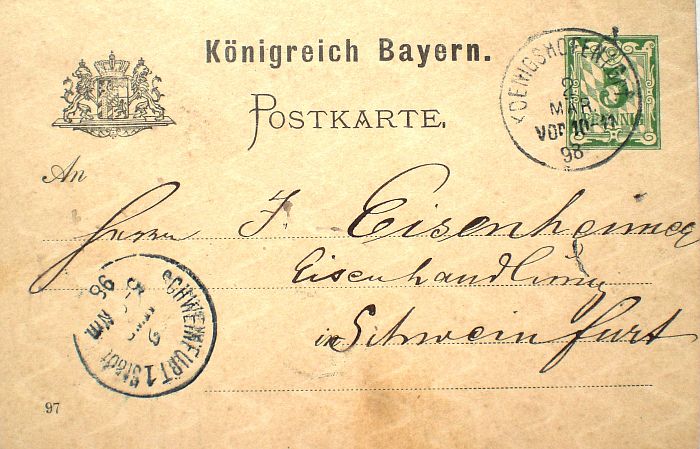 Königreich Bayern.
POSTKARTE.
KOENIGSHOFEN
2
MAR.
VOR. 10-11
98
5
PFENNIG
An
Herrn J. Eisenheimer
Eisenhandlung
in Schweinfurt
SCHWEINFURT 1 Stadt
Nm.
98
97